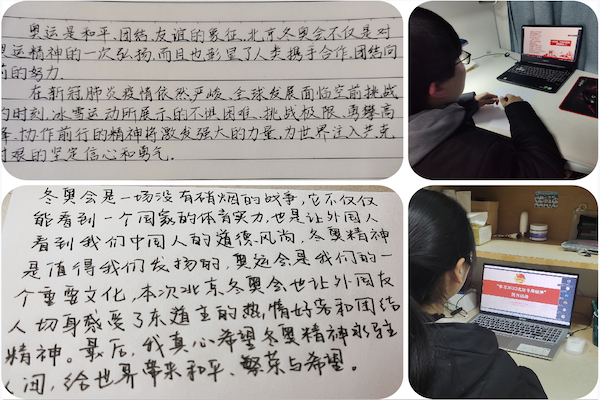 奥运是和平、团结、友谊的象征,北京冬奥会不仅是对
奥运精神的一次弘扬,而且也彰显了人类携手合作、团结向
前的努力.
在新冠肺炎疫情依然严峻、全球发展面临空前挑战
的时刻,冰雪运动所展示的不惧困难、挑战极限、勇攀高
峰、协作前行的精神将激发强大的力量,为世界注入共克
时艰的坚定信心和勇气。
冬奥会是一场没有硝烟的战争,它不仅仅
能看到一个国家的体育实力,也是让外国人
看到我们中国人的道德风尚,冬奥精神
是值得我们发扬的,奥运会是我们的一
个重要文化,本次北京冬奥会也让外国友
人切身感受了东道主的热情好客和团结
精神。最后,我真心希望冬奥精神永驻
人间,给世界带来和平、繁荣与希望。